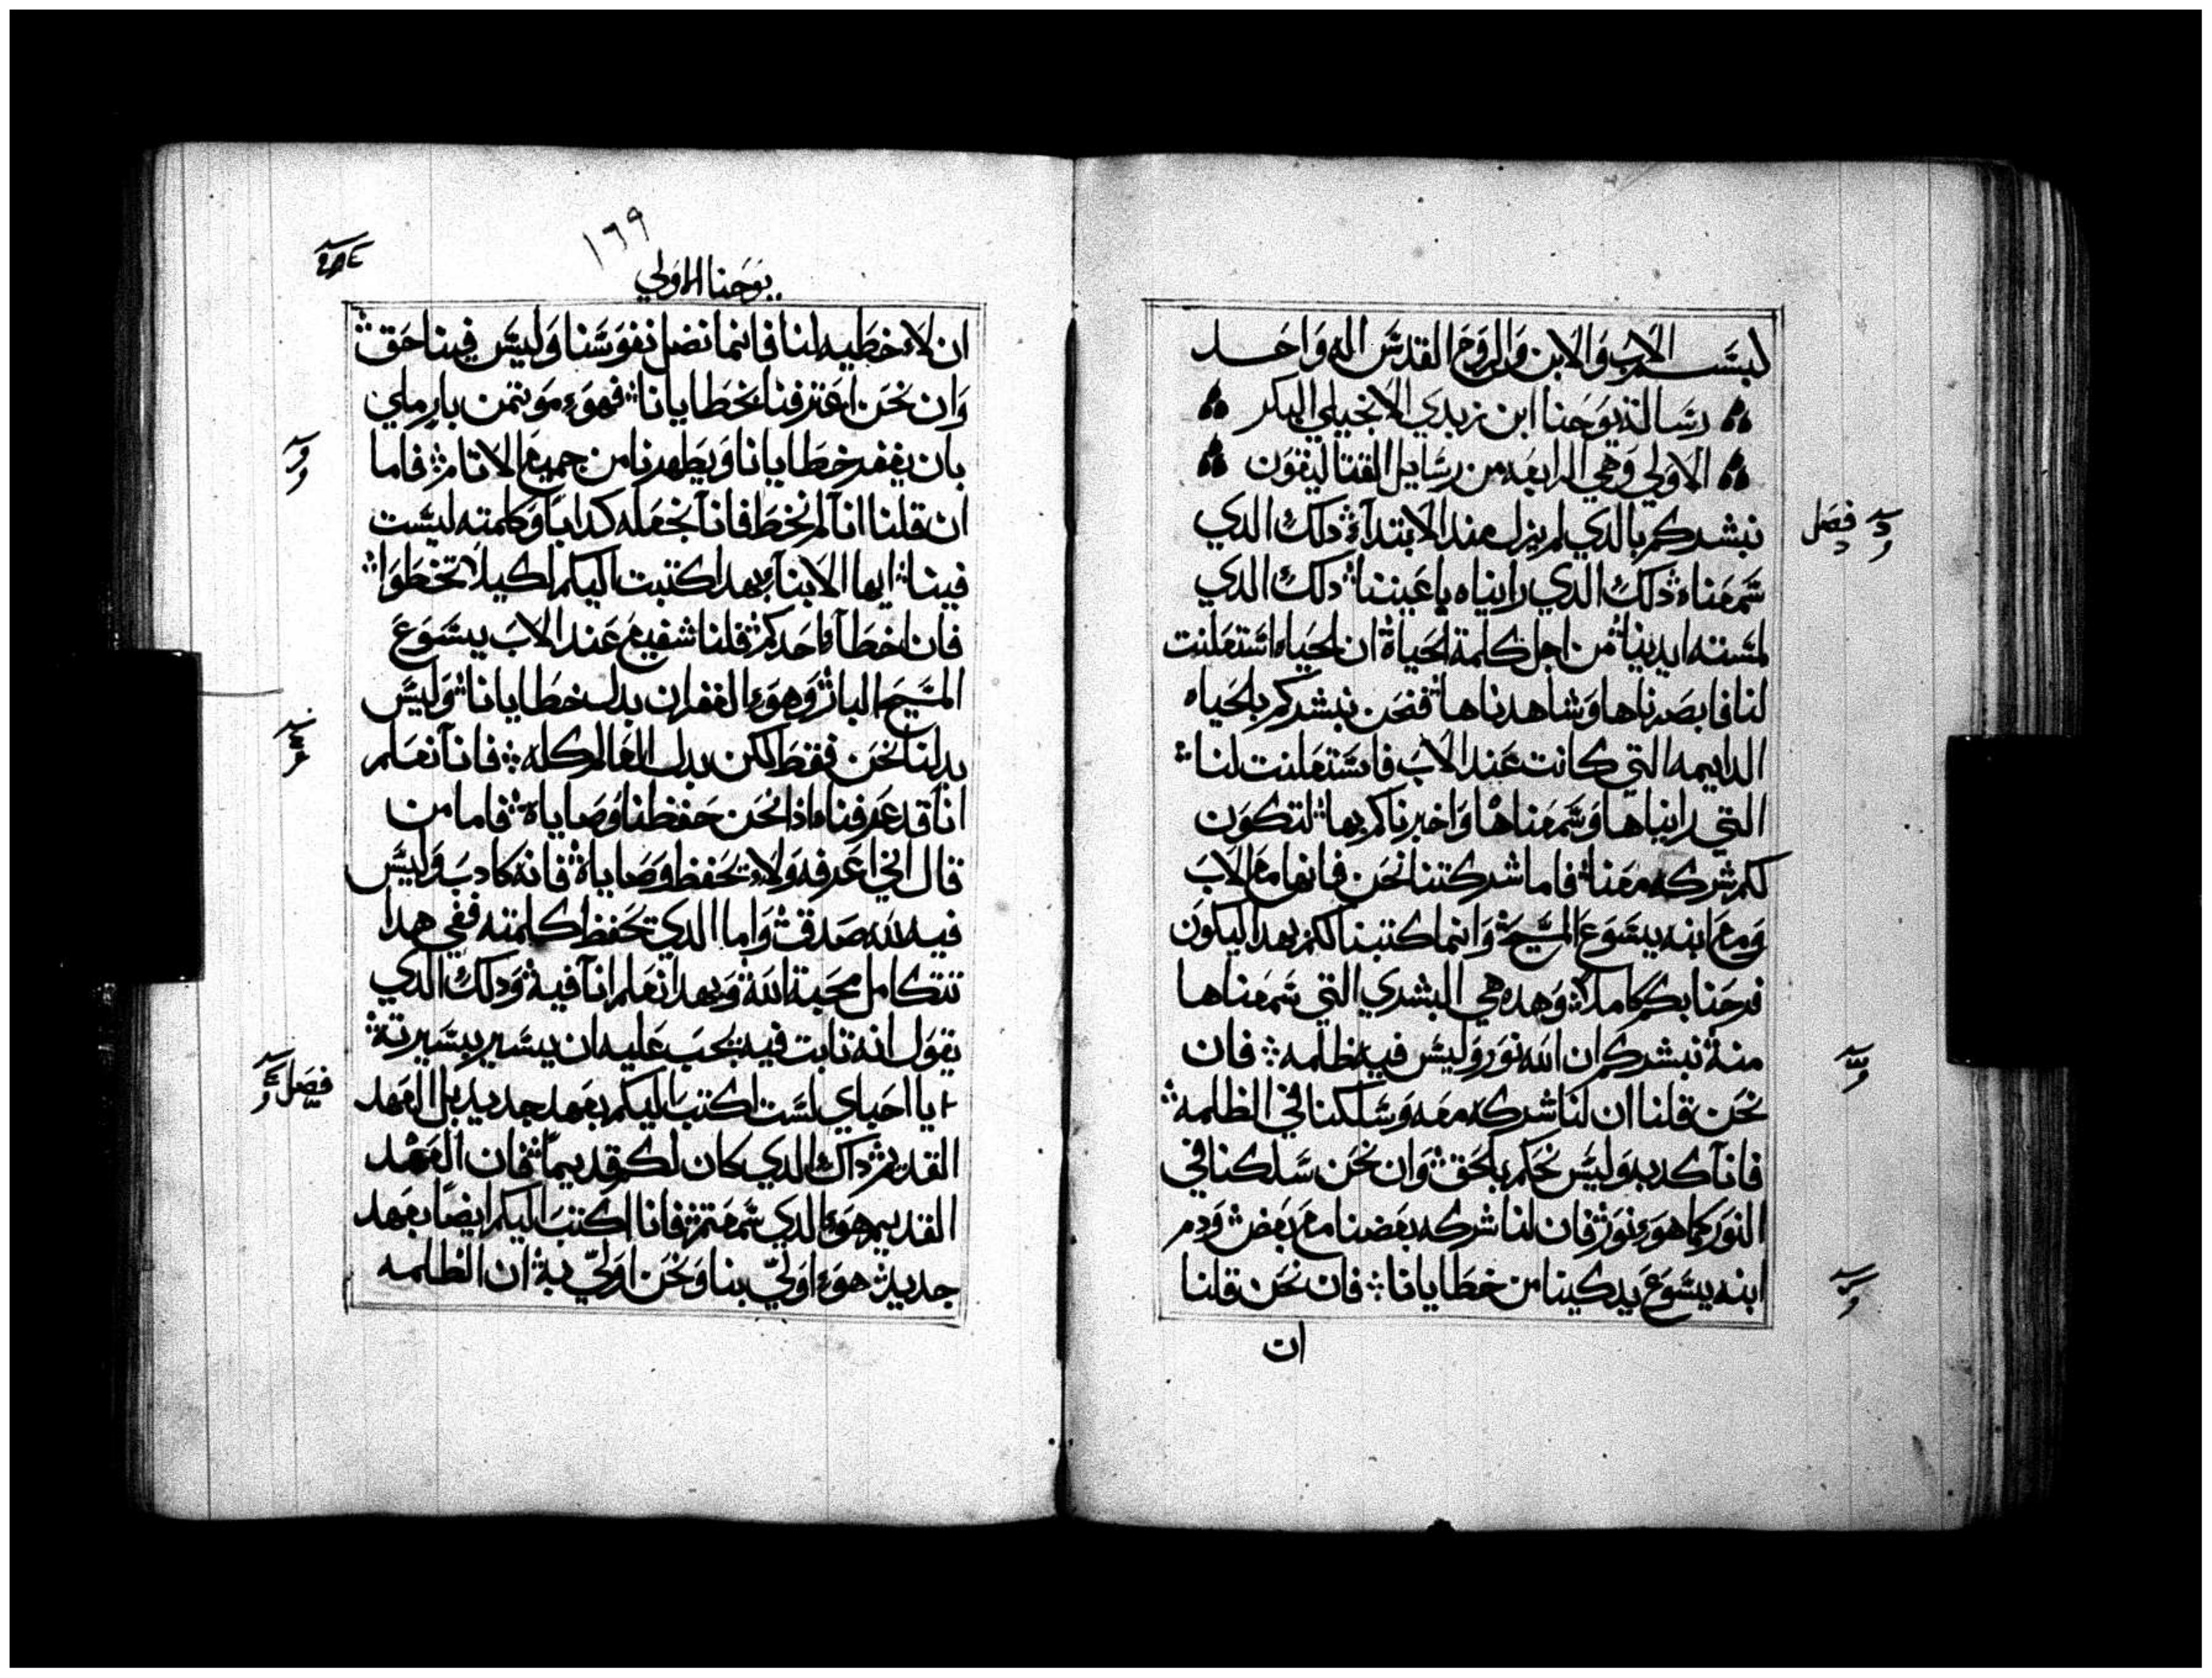 لبسم الاب والابن والروح القدس اله واحد
رساله يوحنا ابن زبدي الانجيلي البكر
الاولي وهي الرابعه من رسايل القتاليقون
فصل
نبشركم بالدي لم يزل مند الابتداء دلك الدي
سمعناه دلك الدي رايناه باعيننا دلك الدي
لمسته ايدينا من اجل كلمة الحياة ان الحياه استعلنت
لنا فابصرناها وشاهدناها فنحن نبشركم بالحياه
الدايمه التي كانت عند الاب فاستعلنت لنا
التي رايناها وسمعناها واخبرناكم بها لتكون
لكم شركه معنا فاما شركتنا نحن فانها مع الاب
ومع ابنه يسوع المسيح وانما كتبنا لكم بهدا ليكون
فرحنا بكم كاملا وهده هي البشري التي سمعناها
منه نبشركم ان الله نور وليس فيه ظلمه فان
نحن قلنا ان لنا شركه معه وسلكنا في الظلمه
فانا كدبه وليس نحكم بالحق وان نحن سلكنا في
النور كما هو نور فان لنا شركه بعضنا مع بعض ودم
ابنه يسوع يدكينا من خطايانا فان نحن قلنا
ان
١٦٩
يوحنا الاولي
ان لا خطيه لنا فانما نضل نفوسنا وليس فينا حق
وان نحن اعترفنا بخطايانا فهو موتمن بار ملي
بان يغفر خطايانا ويطهرنا من جميع الاتام فاما
ان قلنا انا لم نخطا فانا نجعله كدابا وكلمته ليست
فينا ايها الابنا بهدا كتبت اليكم لكيلا تخطوا
فان اخطا احدكم فلنا شفيع عند الاب يسوع
المسيح البار وهو الغفران بدل خطايانا وليس
بدلنا نحن فقط لكن بدل العالم كله فانا نعلم
انا قد عرفناه ادا نحن حفظنا وصاياه فاما من
قال اني اعرفه ولا يحفظ وصاياه فانه كادب وليس
فيه لله صدق واما الدي يحفظ كلمته ففي هدا
تتكامل محبة الله وبهدا نعلم انا فيه ودلك الدي
يقول انه تابت فيه يجب عليه ان يسير بسيرته
فصل
يا احباي لست اكتب اليكم بعهد جديد بل العهد
القديم داك الدي كان لكم قديما فان العهد
القديم هو الدي سمعتم فانا اكتب اليكم ايضا بعهد
جديد هو اولي بنا ونحن اولي به ان الظلمه